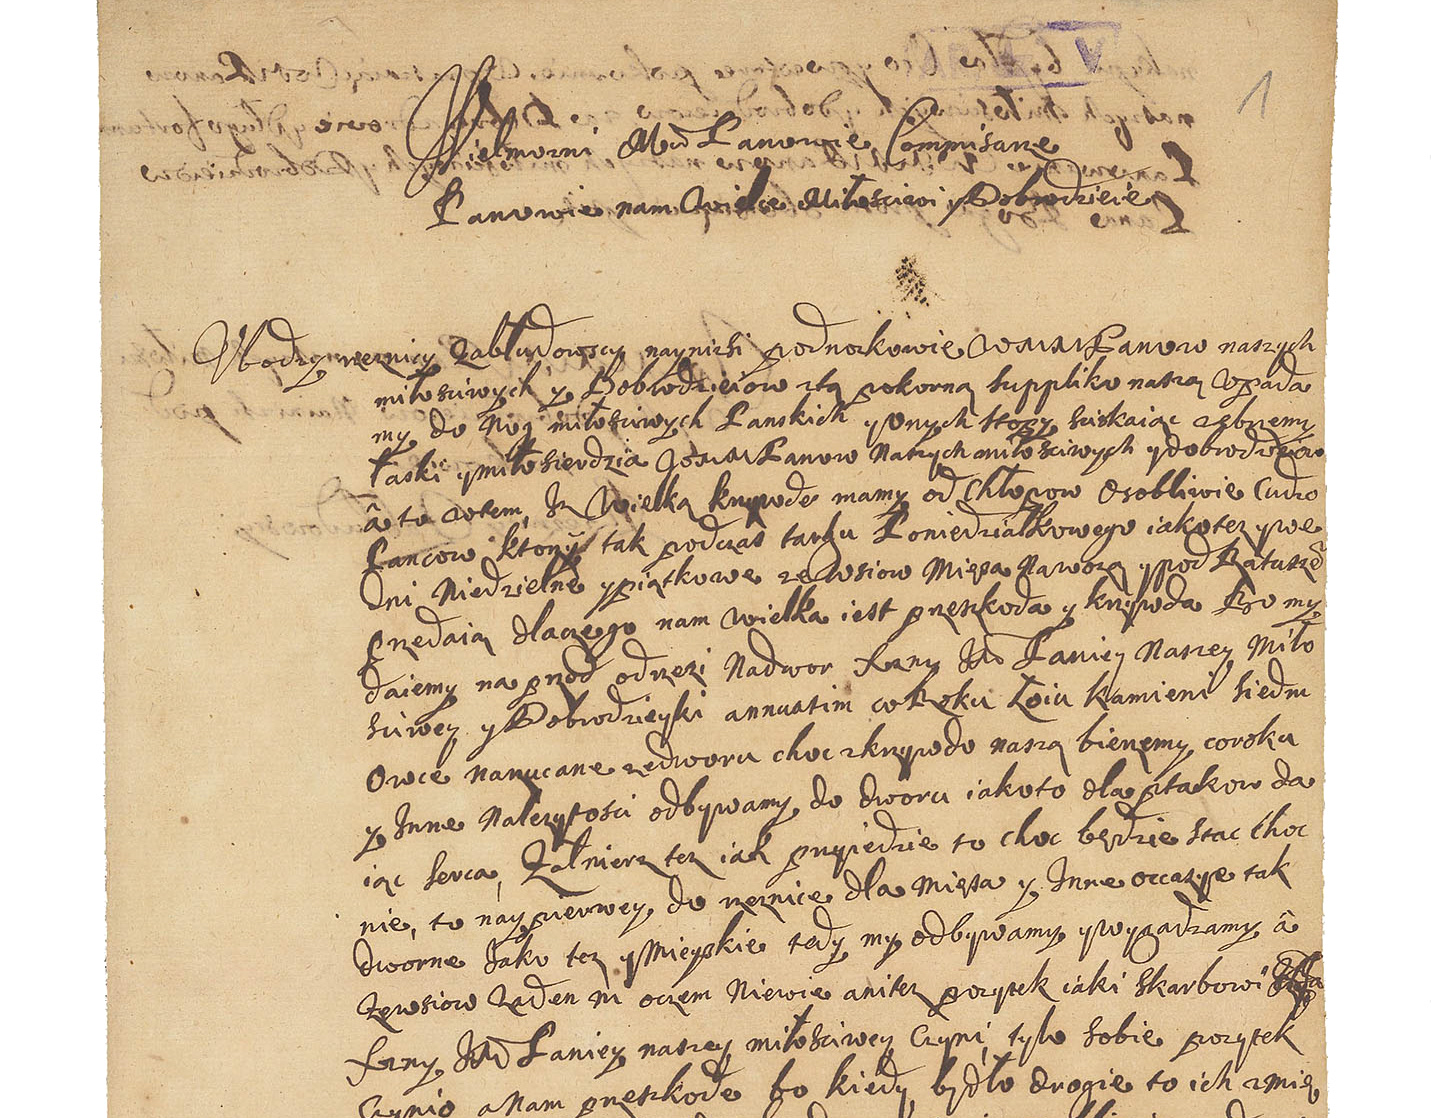 1
Wielmozni Mći Panowie Commisarze
Panowie nam Wielce Miłościwi y Dobrodzieie
Vbodzy rzeznicy Zabłudowscy naynizsi podnozkowie Panow naszych
miłosciwych y Dobrodzieiow ztą pokorną suppliką naszą Vpada
my do Nog miłosciwych Panskich y onych stopy sciskaiąc zebrzemy
łaski y miłosierdzia Panow Naszych miłosciwych y dobrodzieiow
â to wtem, Iz Wielką krzywdę mamy od Chłopow Osobliwie Cudzo
Pancow ktorzy tak podczas targu Poniedziałkowego iako tez y we
Dni Niedzielne y piątkowe ze Wsiow Mięsa Nawozą y pod Ratuszẽ
przedaią dlaczego nam wielka iest przeszkoda y krzywda Bo my
daiemy na przod od rzezi Nadwor Paniey Naszey Miło
sciwey y Dobrodzieyki annuatim co Roku Łoiu kamieni siedm
Owce narzucane ze dworu choc z krzywdą naszą bierzemy coroku
y Inne Nalezytości odbywamy do dworu iako to dla ptakow da
iąc serca, Zołnierz tez iak przyiedzie to choc będzie stac choc
nie, to naypierwey do rzeznice dla Mięsa y Inne occasye tak
dworne Jako tez y Mieyskie tedy my odbywamy y wygadzamy â
ze wsiow Zaden ni oczem Niewie ani tez pozytek iaki Skarbowi
Paniey naszey miłosciwey Czyni, tylo sobie pozytek
Czynią a Nam przeszkodę bo kiedy bydło drogie to ich z mię